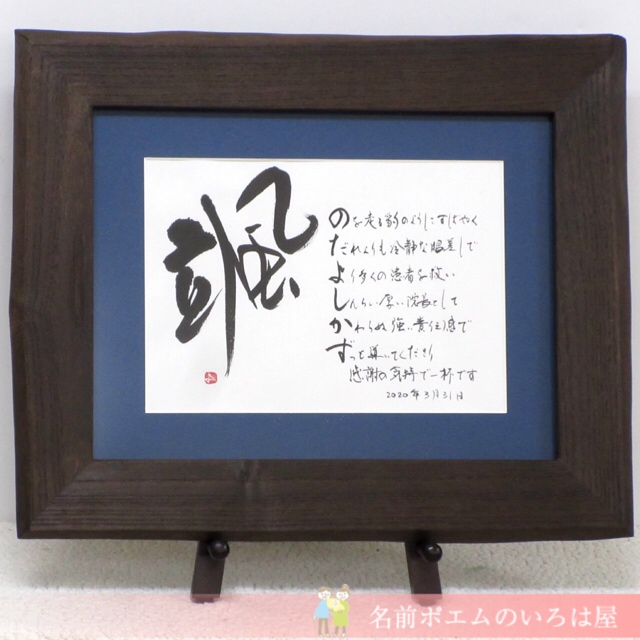 颯
のを走る豹のようにすばやく
だれよりも冷静な眼差しで
より多くの患者を救い
しんらい厚い院長として
かわらぬ強い責任感で
ずっと導いてください
感謝の気持で一杯です
2020年3月31日
名前ポエムのいろは屋